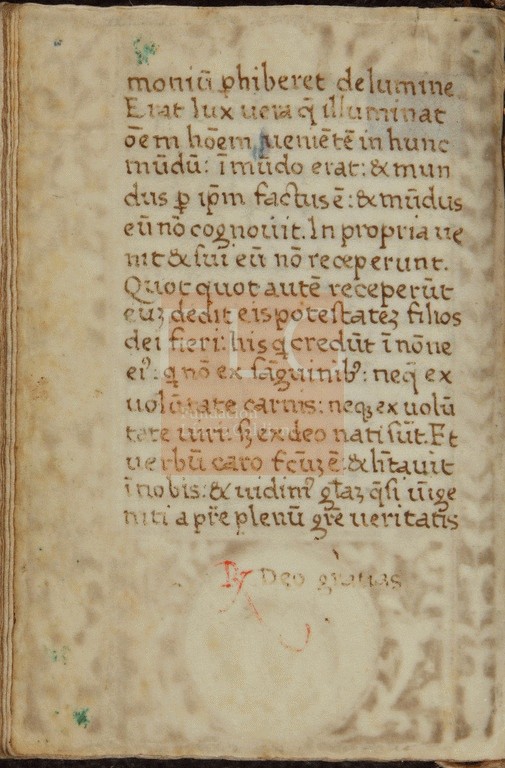 moniũ ꝑhiberet de lumine
Erat lux uera q̃ illuminat
oẽm hoẽm ueniẽtẽ in hunc
mũdũ: ĩ mũdo erat: & mun
dus ꝑ ip̃m factus ẽ: & mũdus
eũ nõ cognouit. In propria ue
nit & sui eũ nõ receperunt.
Quot quot autẽ receperũt
euꝫ dedit eis potestateꝫ filios
dei fieri: his q̃ credũt ĩ noĩe
eiꝰ: q̃ nõ ex sãguinibꝰ: neq̃ ex
uolũtate carnis: neqꝫ ex uolũ
tate uiri: sꝫ ex deo nati sũt. Et
uerbũ caro fc̃uꝫ ẽ: & hĩtauit
ĩ nobis: & uidimꝰ gl̃aꝫ q̃si ũige
niti a pr̃e plenũ gr̃e ueritatis
℟ Deo gratias
Fundación